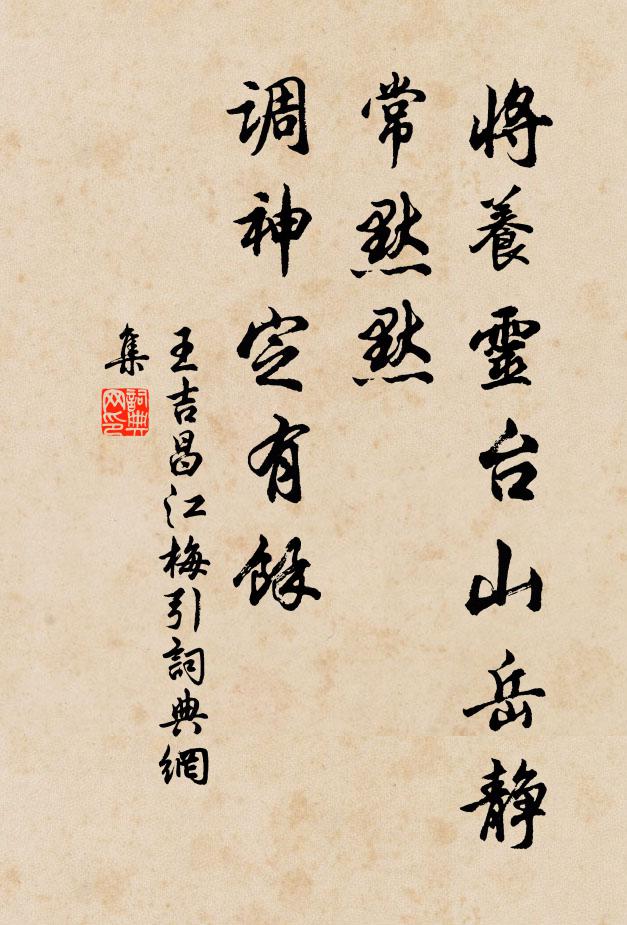 將養靈台山岳靜
常默默
調神定有餘
王吉昌江梅引詞典網
集
詞典
网印